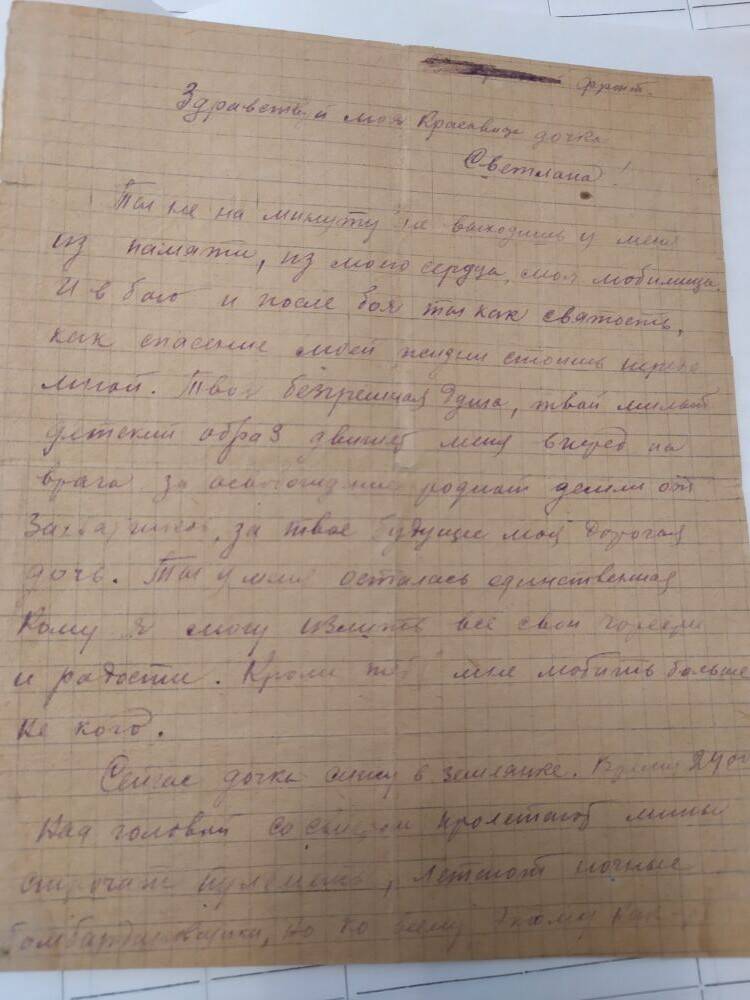 фронт.
Здравствуй моя Красавица дочка
Светлана!
Ты не на минуту не выходишь у меня
из памяти, из моего сердца, моя любимица.
И в бою и после боя ты как святость,
как спасение моей жизни стоишь передо
мной. Твоя безгрешная душа, твой милый
детский образ движет меня вперед на
врага за освобождение родной земли от
захватчиков, за твое будущее моя дорогая
дочь. Ты у меня осталась единственная
Кому я смогу излить все свои горести
и радости. Кроме тебя мне любить больше
не кого.
Сейчас дочка сижу в землянке. Время 24 00
Над головой со свистом пролетают мины
строчат пулеметы, летают ночные
бомбардировщики, но ко всему этому